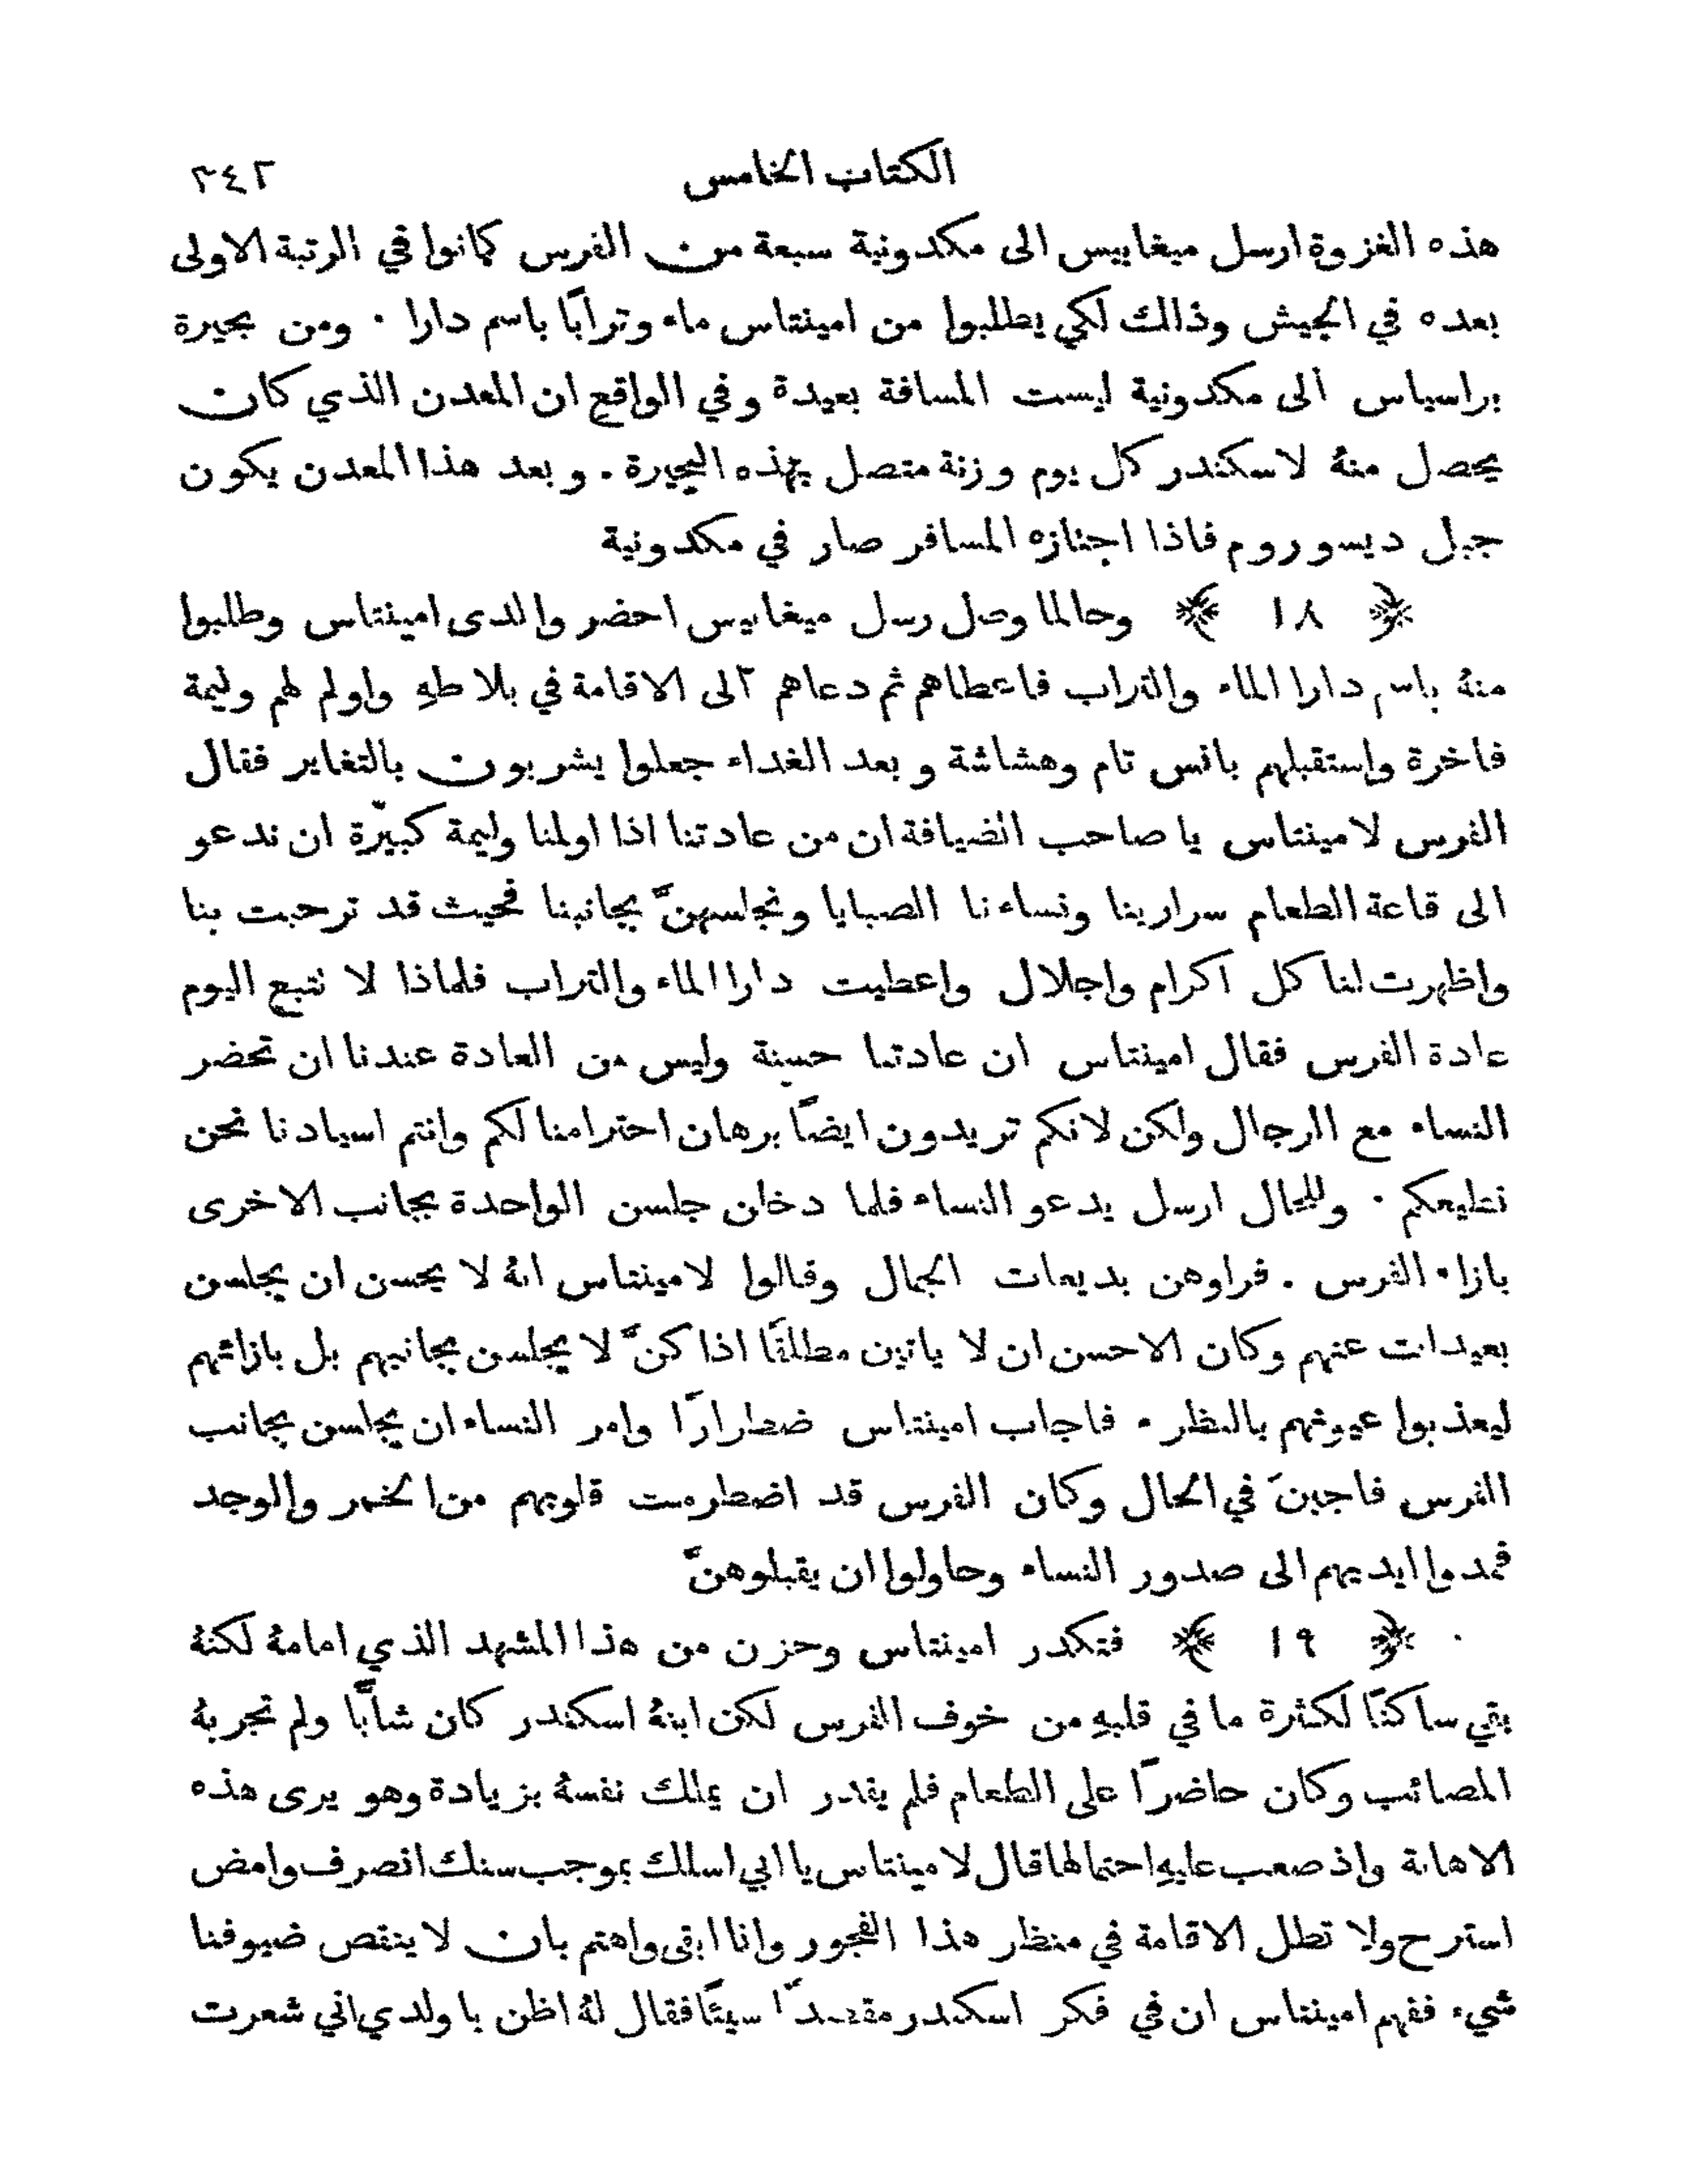 الكتاب الخامس ٢٤٢
هذه الغزوة ارسل ميغابيس الى مكدونية سبعة من الفرس كانوا في الرتبة الاولى
بعده في الجيش وذالك لكي يطلبوا من امينتاس ماء وترابًا باسم دارا ٠ ومن بحيرة
براسياس الى مكدونية ليست المسافة بعيدة وفي الواقع ان المعدن الذي كان
يحصل منهُ لاسكندر كل يوم وزنة متصل بهذه البحيرة ٠ وبعد هذا المعدن يكون
جبل ديسوروم فاذا اجتازه المسافر صار في مكدونية
﴿ ١٨ ﴾ وحالما وصل رسل ميغابيس احضروا لدى امينتاس وطلبوا
منهُ باسم دارا الماء والتراب فاعطاهم ثم دعاهم الى الاقامة في بلاطهِ واولم لهم وليمة
فاخرة واستقبلهم بانس تام وهشاشة وبعد الغداء جعلوا يشربون بالتغاير فقال
الفرس لامينتاس يا صاحب الضيافة ان من عادتنا اذا اولمنا وليمة كبيرّة ان ندعو
الى قاعة الطعام سرارينا ونساءنا الصبايا ونجلسهنَّ بجانبنا فحيث قد ترحبت بنا
واظهرت لنا كل اكرام واجلال واعطيت دارا الماء والتراب فلماذا لا نتبع اليوم
عادة الفرس فقال امينتاس ان عادتنا حسنة وليس من العادة عندنا ان تحضر
النساء مع الرجال ولكن لانكم تريدون ايضًا برهان احترامنا لكم وانتم اسيادنا نحن
نطيعكم ٠ وللحال ارسل يدعو النساء فلما دخلن جلسن الواحدة بجانب الاخرى
بازاء الفرس ٠ فراوهن بديعات الجمال وقالوا لامينتاس انهُ لا يحسن ان يجلسن
بعيدات عنهم وكان الاحسن ان لا ياتين مطلقًا اذا كنَّ لا يجلسن بجانبهم بل بازائهم
ليعذبوا عيونهم بالنظر ٠ فاجاب امينتاس ضطرارًا وامر النساء ان يجلسن بجانب
الفرس فاجبنَ في الحال وكان الفرس قد اضطرمت قلوبهم من الخمر والوجد
فمدوا ايديهم الى صدور النساء وحاولوا ان يقبلوهنَّ
﴿ ١٩ ﴾ فتكدر امينتاس وحزن من هذا المشهد الذي امامهُ لكنهُ
بقي ساكتًا لكثرة ما في قلبهِ من خوف الفرس لكن ابنهُ اسكندر كان شابًّا ولم تجربهُ
المصائب وكان حاضرًا على الطعام فلم يقدر ان يملك نفسهُ بزيادة وهو يرى هذه
الاهانة واذ صعب عليهِ احتمالها قال لامينتاس يا ابي اسلك بموجب سنك انصرف وامض
استرح ولا تطل الاقامة في منظر هذا الفجور وانا ابقى واهتم بان لا ينقص ضيوفنا
شيء ففهم امينتاس ان في فكر اسكدر مقصدًا سيئًا فقال لهُ اظن يا ولدي اني شعرت